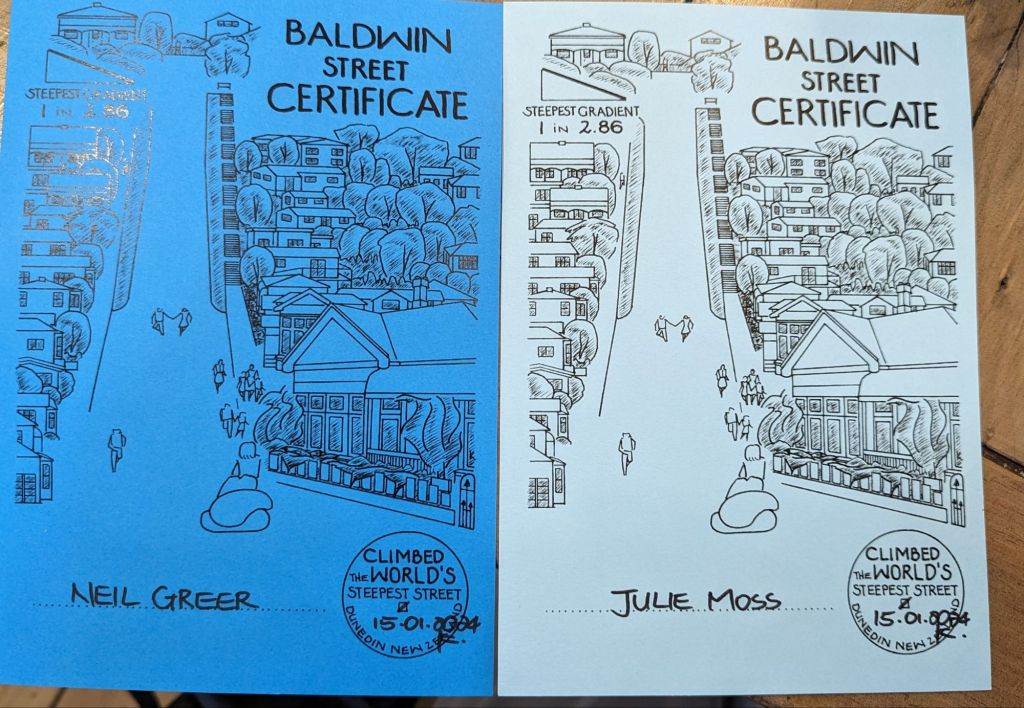 BALDWIN
STREET
CERTIFICATE
STEEPEST GRADIENT
1 IN 2.86
CLIMBED
THE WORLD'S
STEEPEST STREET
15.01.2024
DUNEDIN NEW ZEALAND
NEIL GREER
BALDWIN
STREET
CERTIFICATE
STEEPEST GRADIENT
1 IN 2.86
CLIMBED
THE WORLD'S
STEEPEST STREET
15.01.2024
DUNEDIN NEW ZEALAND
JULIE MOSS